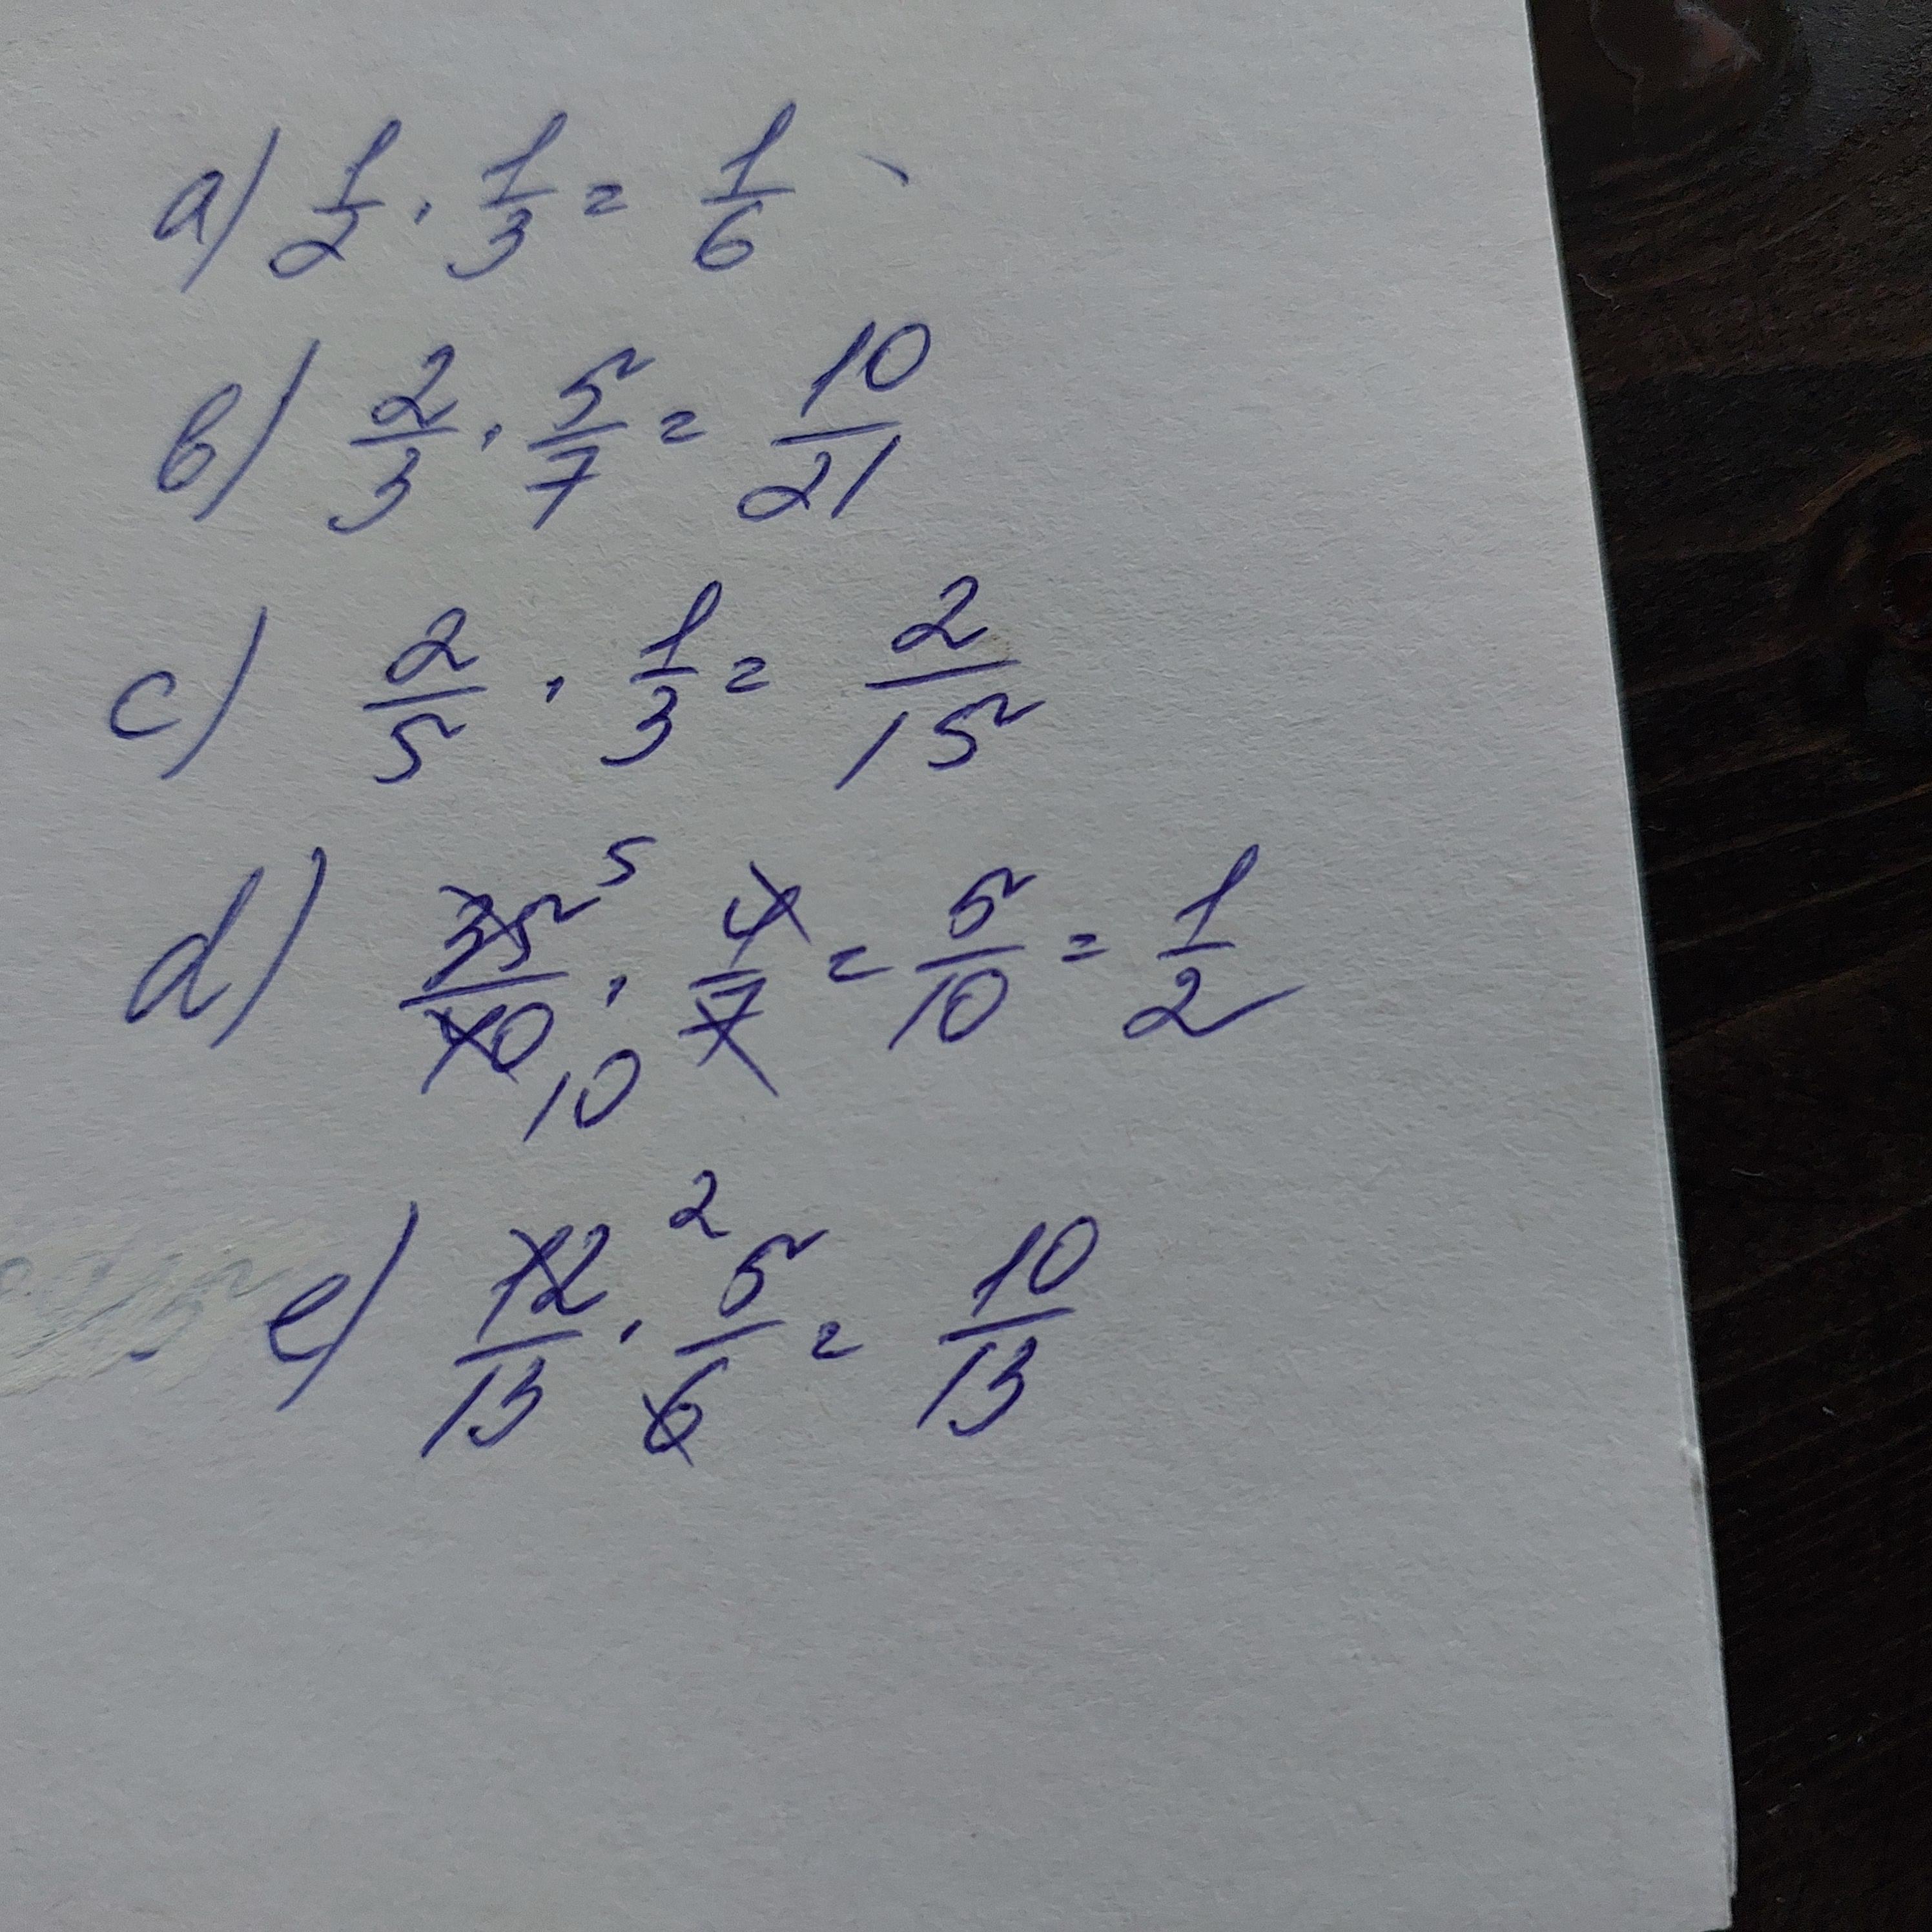 a) 1/2 · 1/3 = 1/6
b) 2/3 · 5/7 = 10/21
c) 2/5 · 1/3 = 2/15
d) 35 5/40 10 · 4/7 = 5/10 = 1/2
e) 12 2/13 · 5/6 = 10/13